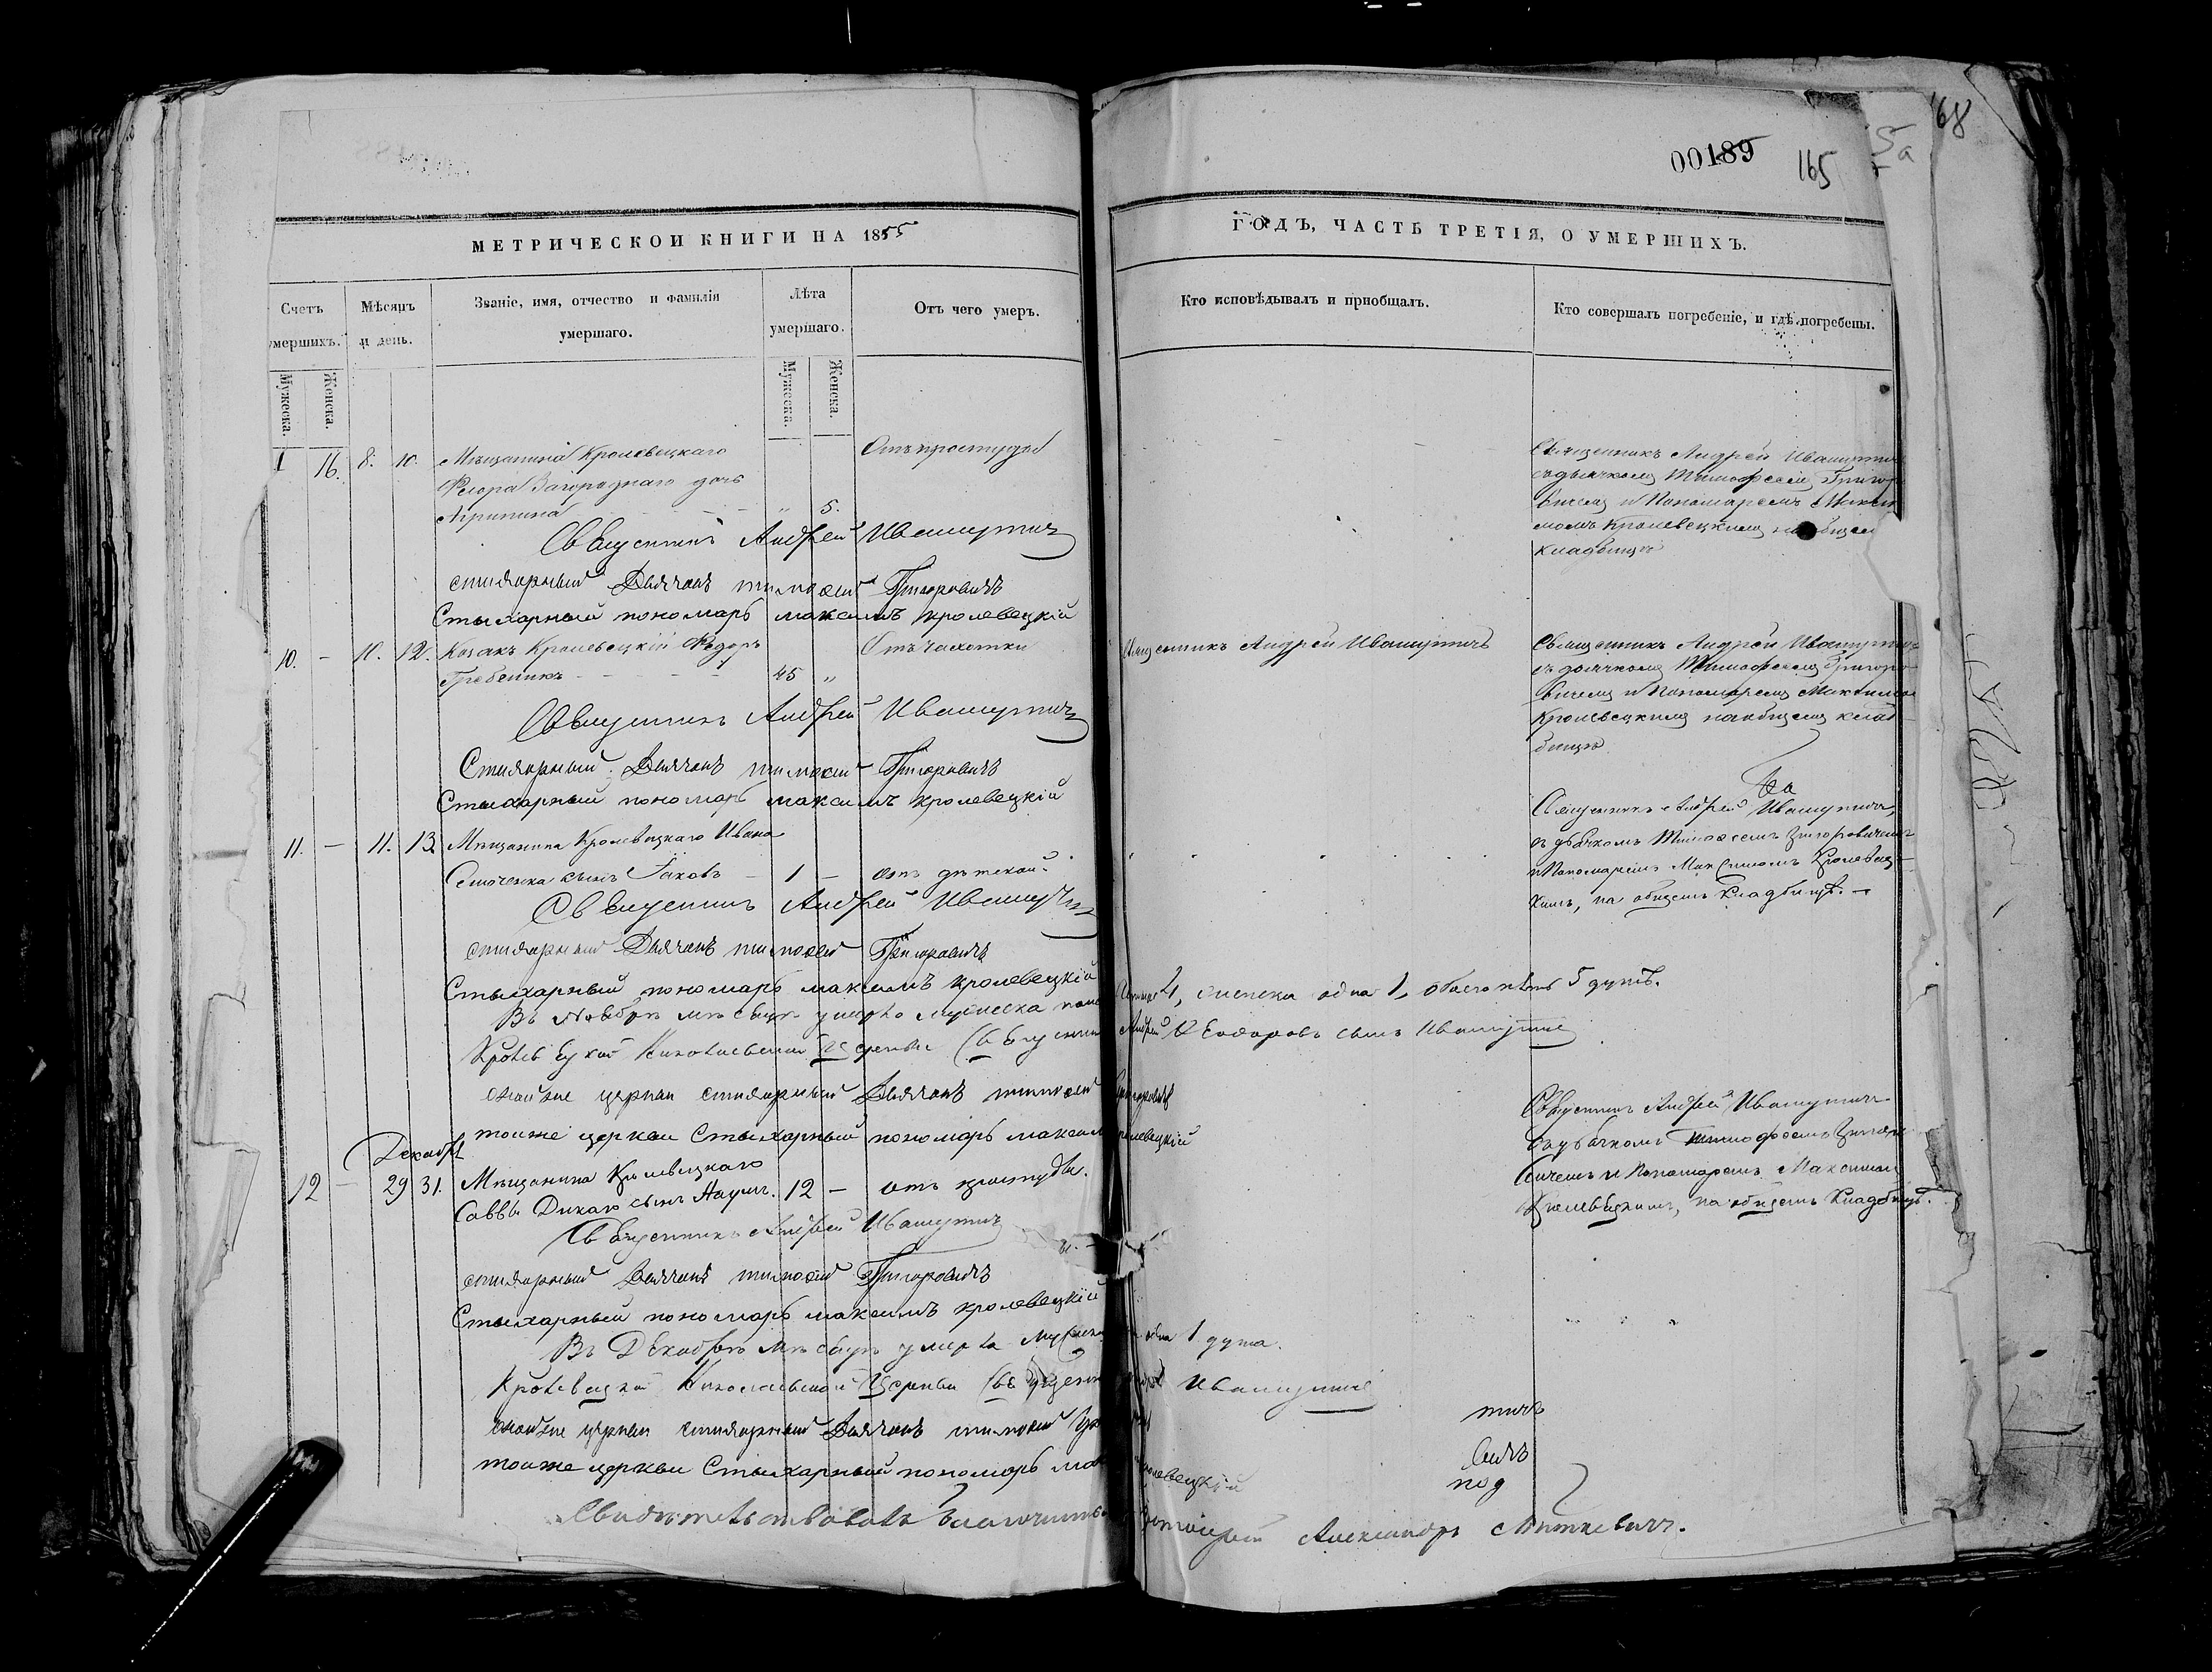 68
5a
00189
165
МЕТРИЧЕСКОИ КНИГИ НА 1855
ГОДЪ, ЧАСТЬ ТРЕТІЯ, О УМЕРШИХЪ.
Счетъ умершихъ.
Мѣсяцъ и день.
Званіе, имя, отчество и фамилія умершаго.
Лѣта умершаго.
Отъ чего умеръ.
Кто исповѣдывалъ и пріобщалъ.
Кто совершалъ погребеніе, и гдѣ погребены.
Мужеска.
Женска.
Мужеска.
Женска.
16. 8. 10. Мѣщанина Кролевецкаго
Феодора Загороднаго дочь
Агрипина - - - " 5.
Отъ простуды
Священникъ Андрей Ивашутичъ
съ дьячкомъ Тимофеемъ Григоро
вичемъ и Пономаремъ Макси
момъ Кролевецкимъ на общем
кладбищѣ
Священникъ Андрей Ивашутичъ
стихарный Дьячокъ тимофей Григоровичъ
Стыхарный пономарь максимъ кролевецкій
10. - 10. 12. Козакъ Кролевецкій Ѳедоръ
Гребеникъ - - - 45 "
Отъ чахотки
Священникъ Андрей Ивашутичъ
Священникъ Андрей Ивашути
съ дьячкомъ Тимофеемъ Григоро
вичемъ и Пономаремъ Максимом
Кролевецкимъ на общемъ клад
бищѣ
Священникъ Андрей Ивашутичъ
Стихарный Дьячокъ тимофей Григоровичъ
Стыхарный пономарь максимъ кролевецкій
11. - 11. 13. Мѣщанина Кролевецкаго Ивана
сынъ Іаковъ - 1 - отъ дѣтской.
Священникъ Андрей Ивашутичъ,
съ дьячкомъ Тимофеемъ Григоровичемъ
и Пономаремъ Максимомъ Кролевец
кимъ, на общемъ кладбищѣ. -
Священникъ Андрей Ивашутичъ
стихарный Дьячокъ тимофей Григоровичъ
Стыхарный пономарь максимъ кролевецкій
Въ Ноябрѣ мѣсяцѣ умерло мужеска пола 4, женска одна 1, обоего 5 душъ.
Кролевецкой Николаевской Церкви Священникъ Андрей Феодоровъ сынъ Ивашутичъ
оной же церкви стихарный Дьячокъ тимофей Григоровичъ
тоиже церкви Стыхарный пономарь максимъ кролевецкій
Декабрь
12 - 29 31. Мѣщанина Кролевецкаго
Саввы Дикаго сынъ Наумъ. 12 - отъ простуды.
Священникъ Андрей Ивашутичъ
съ дьячкомъ Тимофеемъ Григоро
вичемъ и Пономаремъ Максимом
Кролевецкимъ, на общемъ кладбищѣ.
Священникъ Андрей Ивашутичъ
стихарный Дьячокъ тимофей Григоровичъ
Стыхарный пономарь максимъ кролевецкій
Въ Декабрѣ мѣсяцѣ умерла мужеска одна 1 душа.
Кролевецкой Николаевской Церкви Священникъ Андрей Ивашутичъ
оной же церкви стихарный Дьячокъ тимофей
тоиже церкви Стыхарный пономарь мак кролевецкій
тичъ
вичъ
под
Свидѣтельствовалъ благочинный Протоіерей Александръ